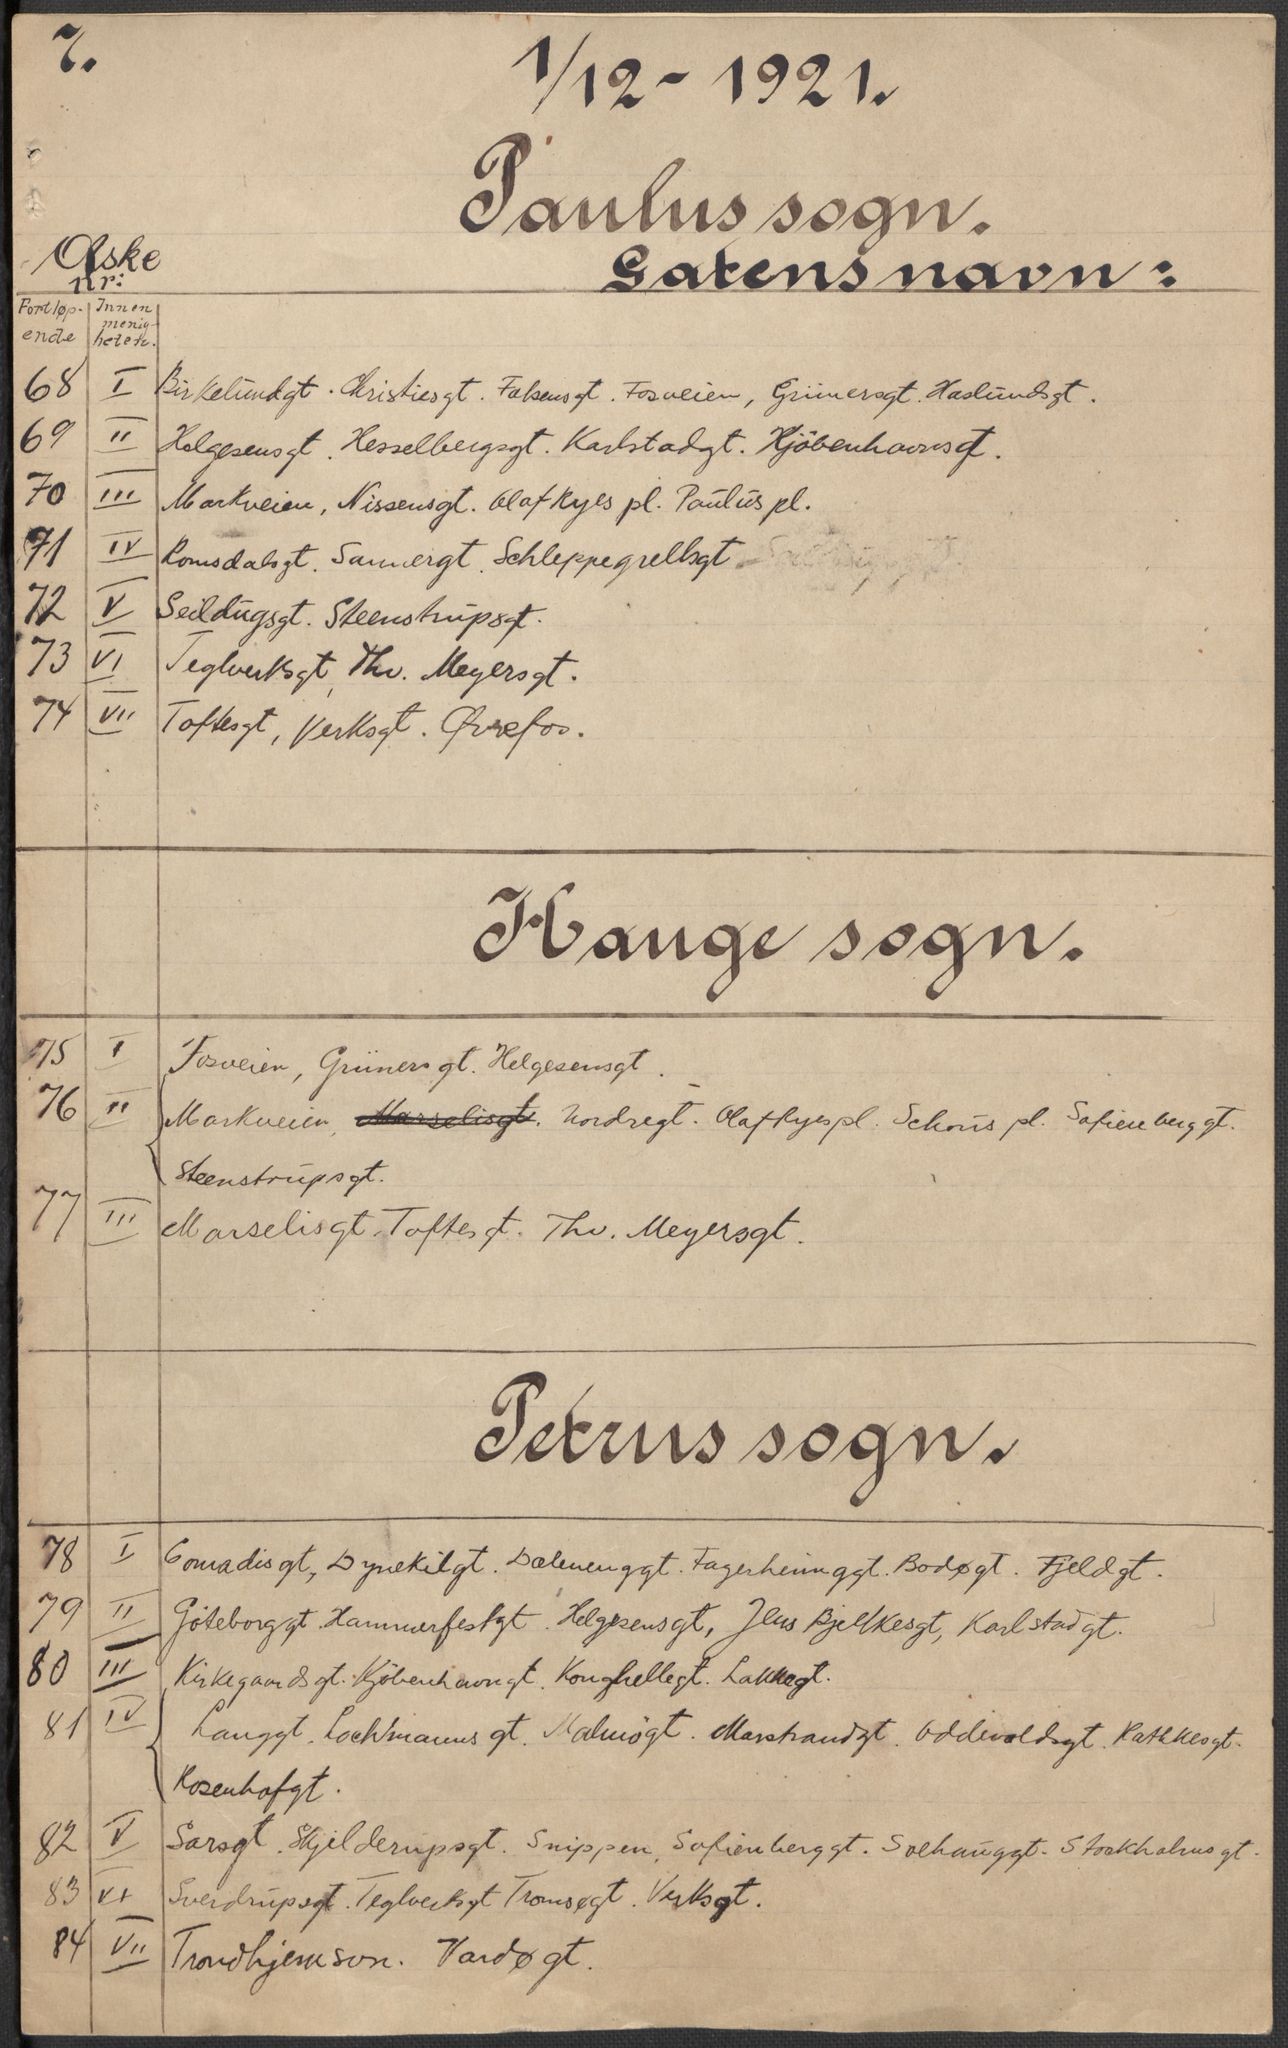 7.
1/12 - 1921.
Paulus sogn.
Æske nr:
Gatens navn:
Fortløp-ende
Innen menig-heten.
68 I Birkelundgt. Christiesgt. Falsensgt. Fosveien, Grünersgt. Haslundsgt.
69 II Helgesensgt. Hesselbergsgt. Karlstadgt. Kjöbenhavnsgt.
70 III Markveien, Nissensgt. Olaf Ryes pl. Paulus pl.
71 IV Romsdalsgt. Sannergt. Schleppegrellsgt
72 V Seildugsgt. Steenstrupsgt.
73 VI Teglverksgt, Thv. Meyersgt.
74 VII Toftesgt, Verksgt. Øvrefos.
Hauge sogn.
75 I Fosveien, Grünersgt. Helgesensgt.
76 II Markveien, Marselisgt. Nordregt. Olaf Ryes pl. Schous pl. Sofienberggt.
Steenstrupsgt.
77 III Marselisgt. Toftesgt. Thv. Meyersgt.
Petrus sogn.
78 I Conradisgt, Dynekilgt. Dælenenggt. Fagerheimggt. Bodøgt. Fjeldgt.
79 II Göteborggt. Hammerfestgt. Helgesensgt, Jens Bjelkesgt, Karlstadgt.
80 III Kirkegaardsgt. Kjöbenhavngt. Konghellegt. Lakkegt.
81 IV Langgt. Lochmannsgt. Malmögt. Marstrandgt. Oddevoldsgt. Rathkesgt.
Rosenhofgt.
82 V Sarsgt. Skjelderupsgt. Snippen, Sofienberggt. Solhauggt. Stockholmsgt.
83 VI Sverdrupsgt. Teglverksgt Tromsøgt. Verksgt.
84 VII Trondhjemsvn. Vardøgt.